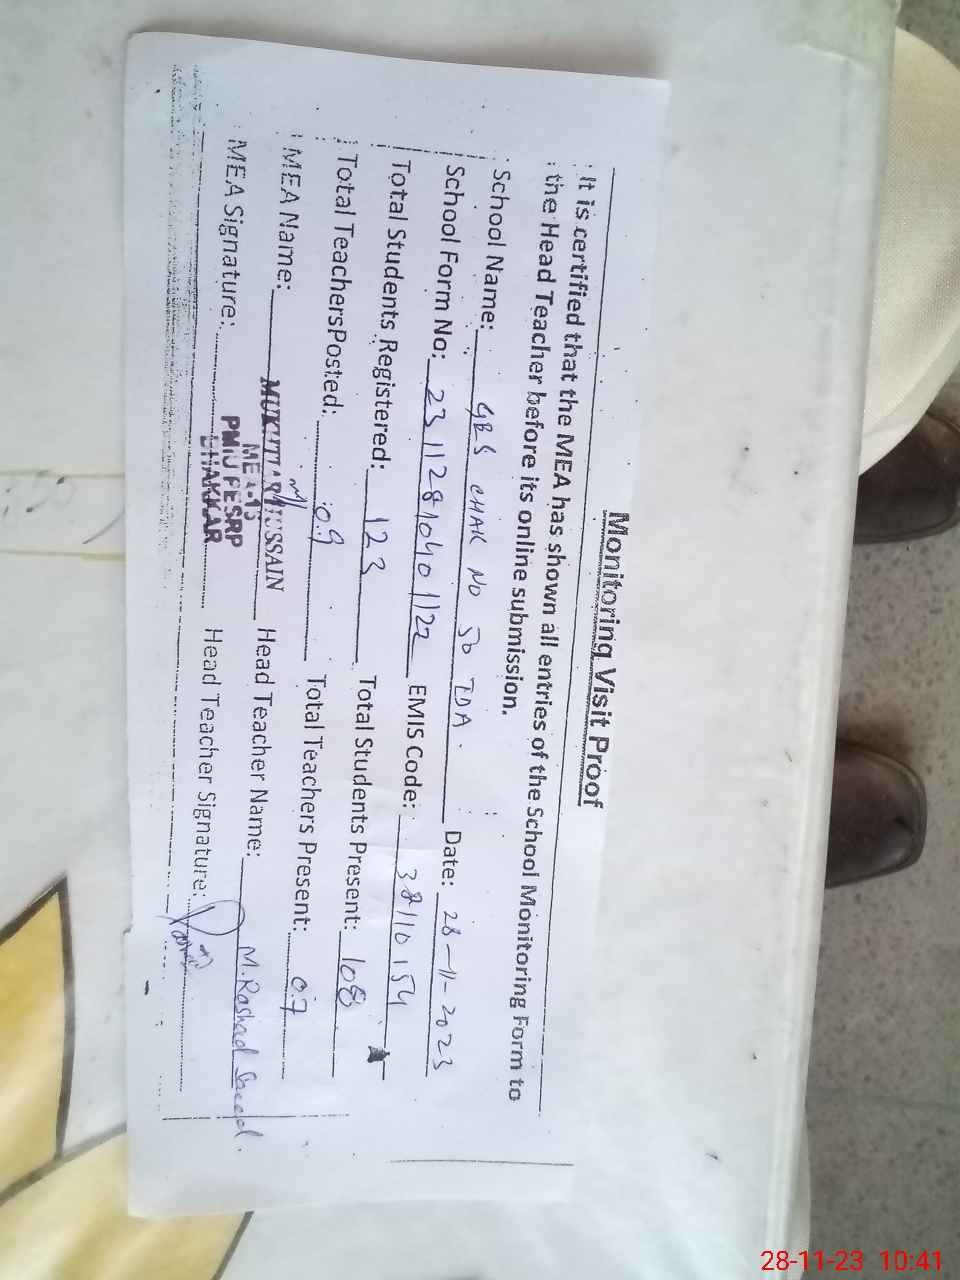 Monitoring Visit Proof
It is certified that the MEA has shown all entries of the School Monitoring Form to
the Head Teacher before its online submission.
School Name: GES CHAK NO 50 TDA. Date: 28-11-2023
School Form No: 23112810401122 EMIS Code: 38110154
Total Students Registered: 123 Total Students Present: 108
Total TeachersPosted: 09 Total Teachers Present: 07
MEA Name: MUKHTIAR HUSSAIN Head Teacher Name: M. Rashad Saeed.
MEA-13
PMIU PESRP
BHAKKAR
MEA Signature: Head Teacher Signature:
28-11-23 10:41